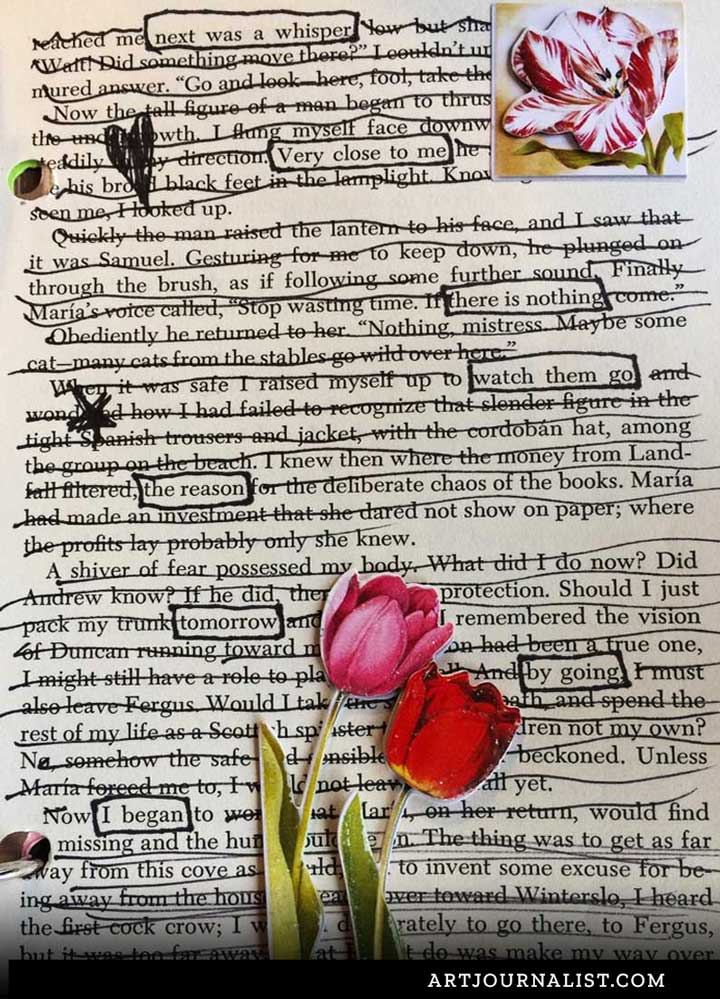 reached me next was a whisper low but sha
"Wait! Did something move there?" I couldn't un
mured answer. "Go and look—here, fool, take the
Now the tall figure of a man began to thrus
the owth. I flung myself face downw
teadily direction. Very close to me he
his black feet in the lamplight. Know
seen me, I looked up.
Quickly the man raised the lantern to his face, and I saw that
it was Samuel. Gesturing for me to keep down, he plunged on
through the brush, as if following some further sound. Finally
María's voice called, "Stop wasting time. If there is nothing, come."
Obediently he returned to her. "Nothing, mistress. Maybe some
cat—many cats from the stables go wild over here."
When it was safe I raised myself up to watch them go and
wond ed how I had failed to recognize that slender figure in the
tight Spanish trousers and jacket, with the cordobán hat, among
the group on the beach. I knew then where the money from Land-
fall filtered, the reason for the deliberate chaos of the books. María
had made an investment that she dared not show on paper; where
the profits lay probably only she knew.
A shiver of fear possessed my body. What did I do now? Did
Andrew know? If he did, ther protection. Should I just
pack my trunk tomorrow and I remembered the vision
of Duncan running toward m on had been a true one,
I might still have a role to pla And by going, I must
also leave Fergus. Would I tak the s path, and spend the
rest of my life as a Scottish spinster dren not my own?
No, somehow the safe d nsible beckoned. Unless
María forced me to, I w ld not leav all yet.
Now I began to wor hat María, on her return, would find
missing and the hun ould e n. The thing was to get as far
away from this cove as uld, to invent some excuse for be-
ing away from the house ear over toward Winterslo, I heard
the first cock crow; I w d rately to go there, to Fergus,
but it was too far away at t do was make my way over
ARTJOURNALIST.COM